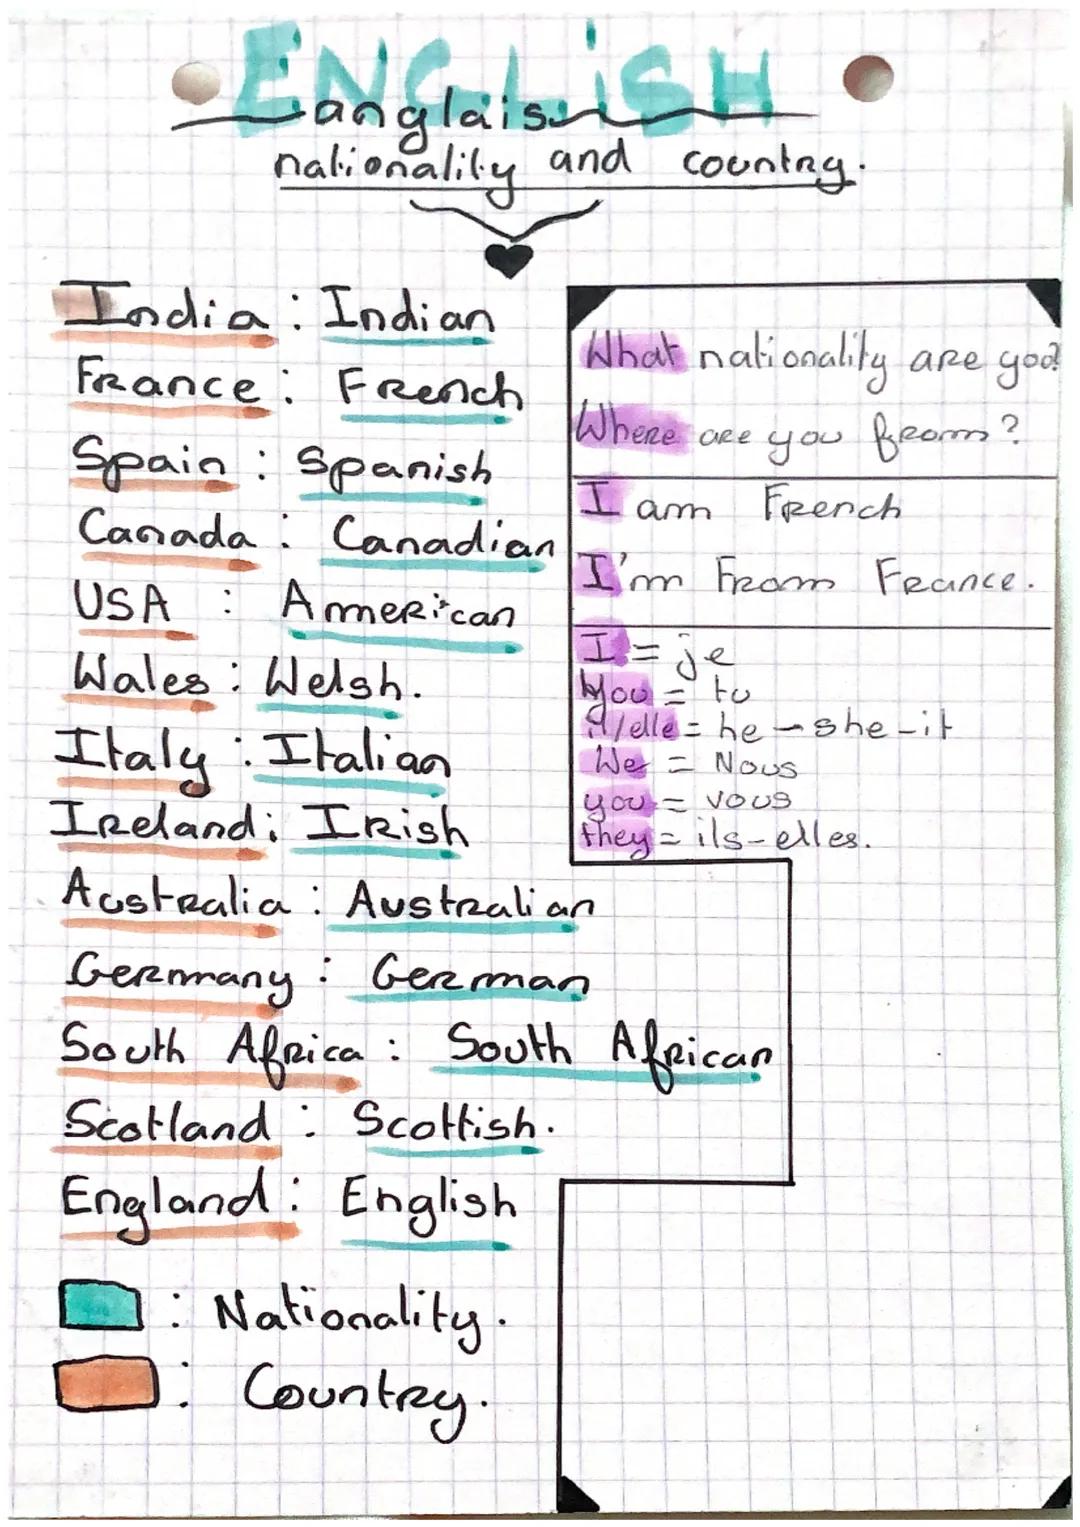 ENGLiSH
anglais
nationality and country.
India : Indian
France : French
Spain : Spanish
Canada : Canadian
USA : American
Wales : Welsh.
Italy : Italian
Ireland : Irish
Australia : Australian
Germany : German
South Africa : South African
Scotland : Scottish.
England : English
: Nationality.
: Country.
What nationality are you?
Where are you from?
I am French
I'm From France.
I = je
You = tu
il/elle = he - she - it
We = Nous
you = vous
they = ils - elles.